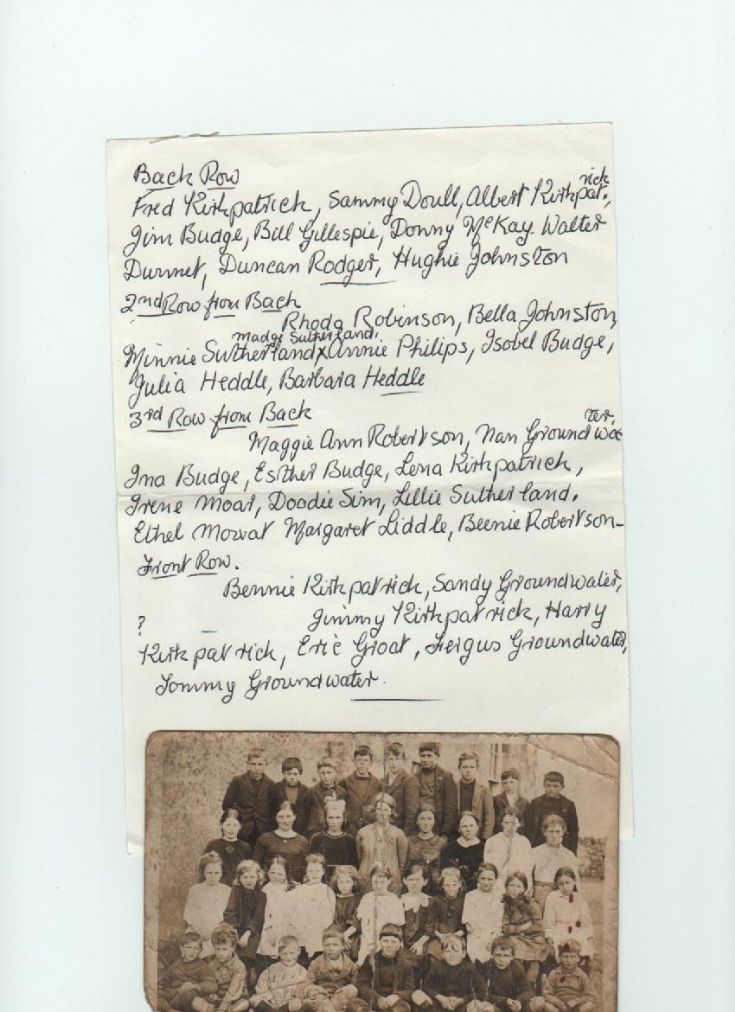 Back Row
Fred Kirkpatrick, Sammy Doull, Albert Kirkpatrick,
Jim Budge, Bill Gillespie, Donny McKay Walter
Dunnet, Duncan Rodger, Hughie Johnston
2nd Row from Back
Rhoda Robinson, Bella Johnston,
Madge Sutherland.
Minnie Sutherland x Annie Philips, Isobel Budge,
Julia Heddle, Barbara Heddle
3rd Row from Back
Maggie Ann Robertson, Nan Groundwater,
Ina Budge, Esther Budge, Lena Kirkpatrick,
Irene Moar, Doodie Sim, Lillie Sutherland.
Ethel Mowat Margaret Liddle, Beenie Robertson-
Front Row.
Bennie Kirkpatrick, Sandy Groundwater,
? Jimmy Kirkpatrick, Harry
Kirkpatrick, Eric Groat, Fergus Groundwater,
Tommy Groundwater.